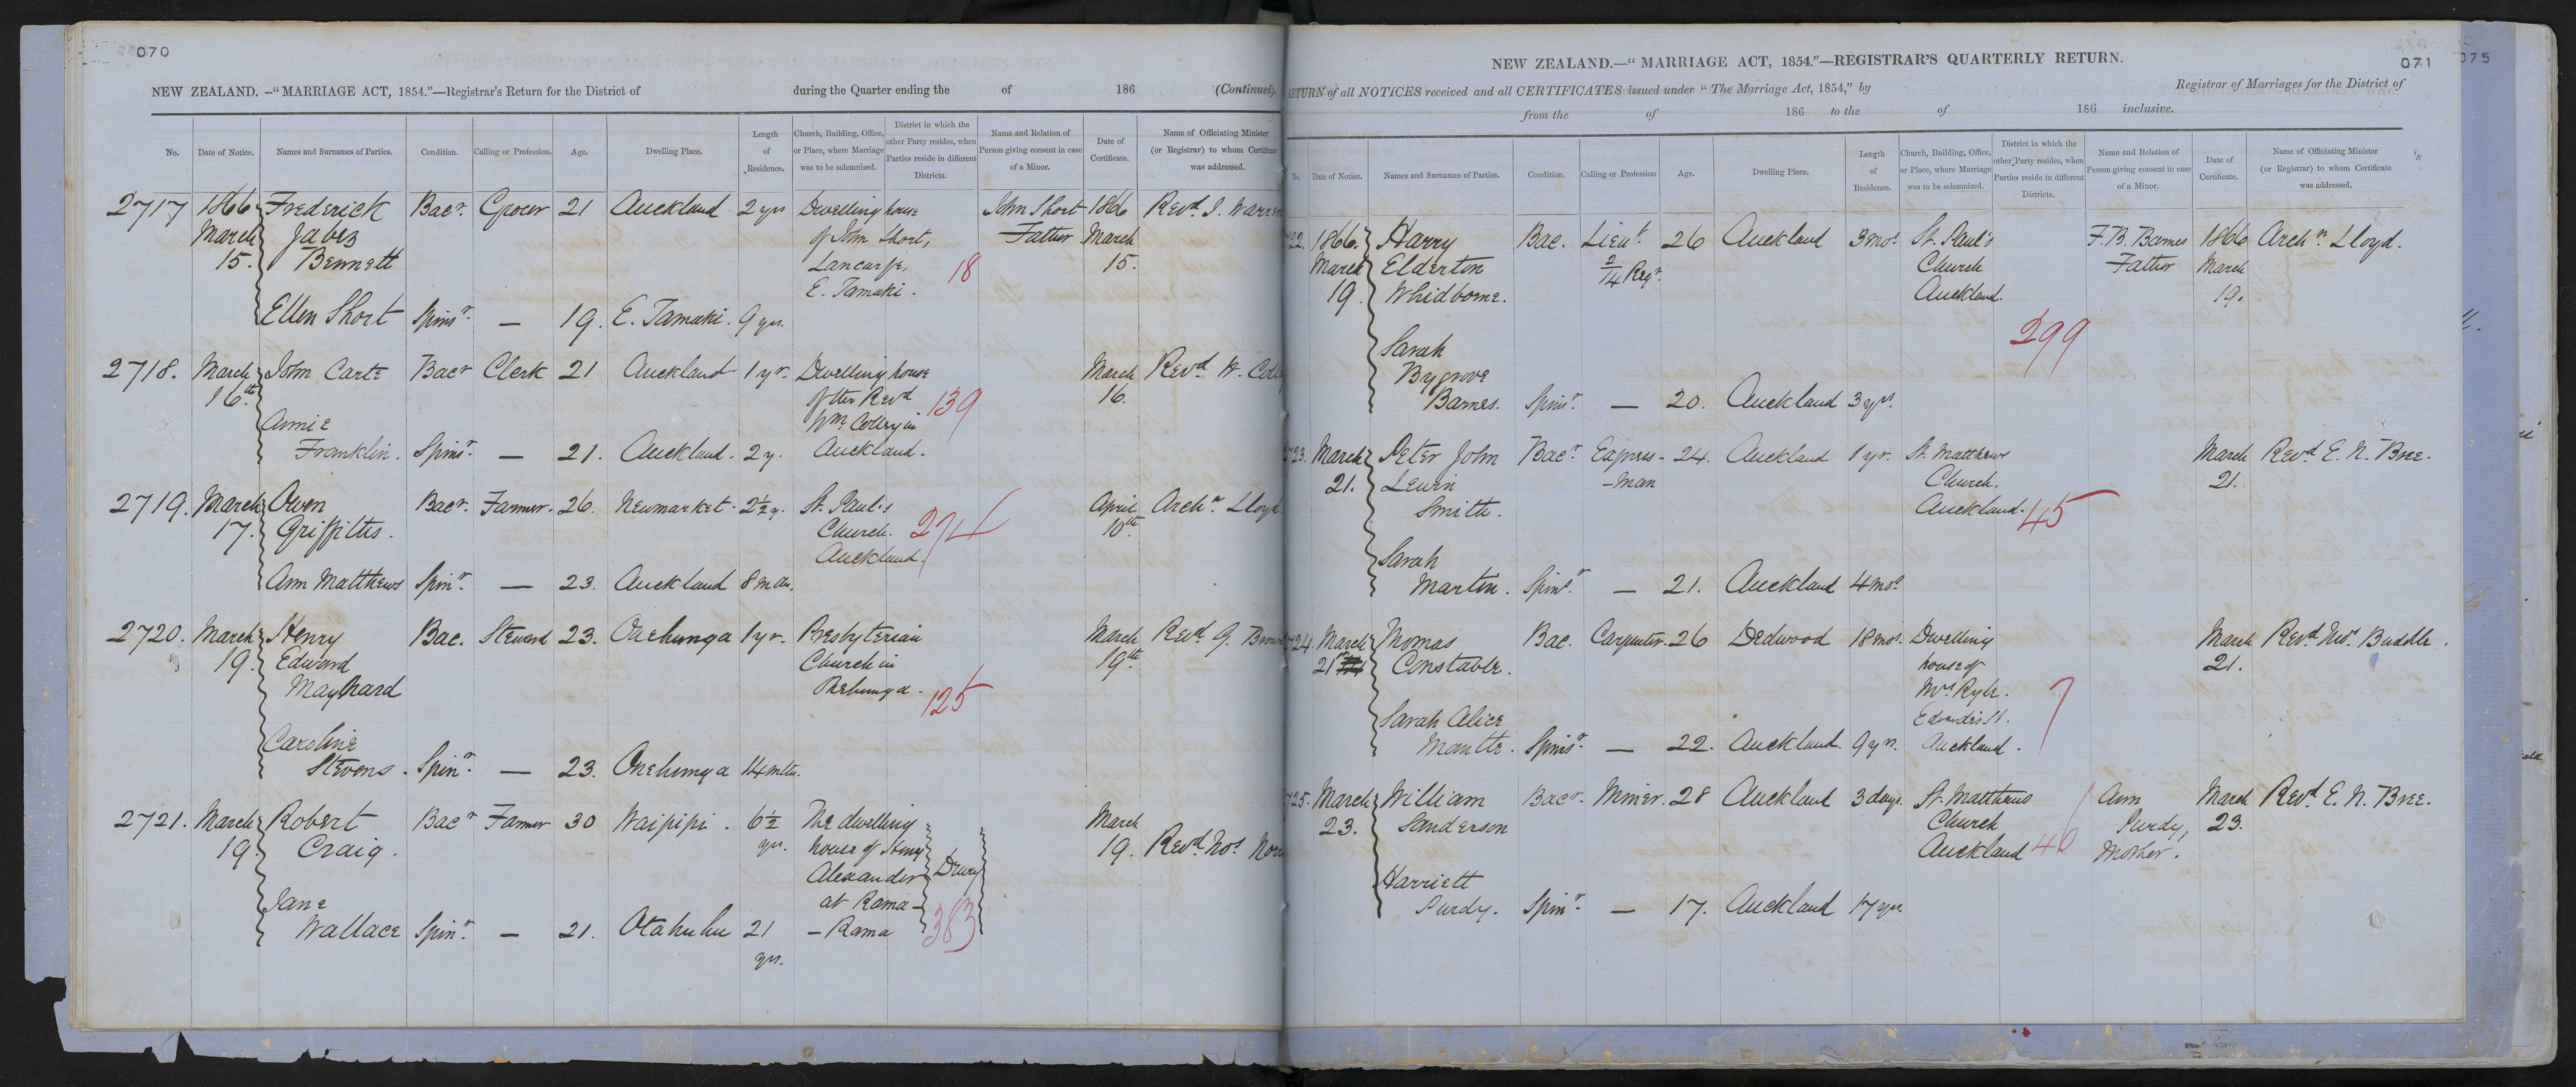 070
NEW ZEALAND. –“MARRIAGE ACT, 1854.”—Registrar's Return for the District of during the Quarter ending the of 186 (Continued).
No. Date of Notice. Names and Surnames of Parties. Condition. Calling or Profession. Age. Dwelling Place. Length of Residence. Church, Building, Office, or Place, where Marriage was to be solemnized. District in which the other Party resides, when Parties reside in different Districts. Name and Relation of Person giving consent in case of a Minor. Date of Certificate. Name of Officiating Minister (or Registrar) to whom Certificate was addressed.
2717 1866 Frederick Bacr. Grocer 21 Auckland 2 yrs Dwelling house John Short 1866 Revd. J. Warren
March Jabez of John Short, Father March
15. Bennett 18 15.
E. Tamaki.
Ellen Short Spinsr. — 19. E. Tamaki. 9 yrs.
2718. March John Carte Bacr Clerk 21 Auckland 1 yr. Dwelling house March Revd. W.
16th of the Revd 139 16.
Annie Wm. Colley in
Franklin. Spinsr. — 21. Auckland. 2 y. Auckland.
2719. March Owen Bacr. Farmer. 26. Newmarket. 2½ y. St. Paul's April Archn. Lloyd
17. Griffiths. Church. 274 10th.
Auckland.
Ann Matthews Spinr. — 23. Auckland 8 mths.
2720. March Henry Bac. Steward 23. Onehunga 1 yr. Presbyterian March Revd. G.
19. Edward Church in 19th.
Maynard Onehunga. 125
Caroline
Stevens. Spinr. — 23. Onehunga 14 mths.
2721. March Robert Bacr Farmer 30 Waipipi. 6½ The dwelling March
19. Craig. yrs. house of Henry 19. Revd. Thos. Norrie
Alexander Drury
Jane at Rama-
Wallace Spinr. — 21. Otahuhu 21 -Rama 383
yrs.
071
075
NEW ZEALAND.—“MARRIAGE ACT, 1854.”—REGISTRAR'S QUARTERLY RETURN.
RETURN of all NOTICES received and all CERTIFICATES issued under “The Marriage Act, 1854,” by Registrar of Marriages for the District of
from the of 186 to the of 186 inclusive.
No. Date of Notice. Names and Surnames of Parties. Condition. Calling or Profession Age. Dwelling Place. Length of Residence. Church, Building, Office, or Place, where Marriage was to be solemnized. District in which the other Party resides, when Parties reside in different Districts. Name and Relation of Person giving consent in case of a Minor. Date of Certificate. Name of Officiating Minister (or Registrar) to whom Certificate was addressed.
22. 1866. Harry Bac. Lieut. 26 Auckland 3 mos. St. Paul's F. B. Barnes 1866 Archn. Lloyd.
March Elderton 2/14 Regt. Church Father March
19. Whidborne. Auckland. 19.
299
Sarah
Bygrove
Barnes. Spinsr. — 20. Auckland 3 yrs.
23. March Peter John Bacr. Express- 24. Auckland 1 yr. St. Matthews March Revd. E. N. Bree.
21. Lewin -man Church. 21.
Smith. Auckland. 45
Sarah
Martin. Spinsr. — 21. Auckland 4 mos.
24. March Thomas Bac. Carpenter. 26 Dedwood 18 mos. Dwelling March Revd. Thos. Buddle.
21st Constable. house of 21.
Mrs. Ryle. 7
Sarah Alice Edwardes St.
Mantle. Spinsr. — 22. Auckland. 9 yrs. Auckland.
25. March William Bacr. Miner. 28 Auckland 3 days. St. Matthews Ann March Revd. E. N. Bree.
23. Sanderson Church Purdy, 23.
Auckland 40 Mother.
Harriett
Purdy. Spinr. — 17. Auckland 17 yrs.